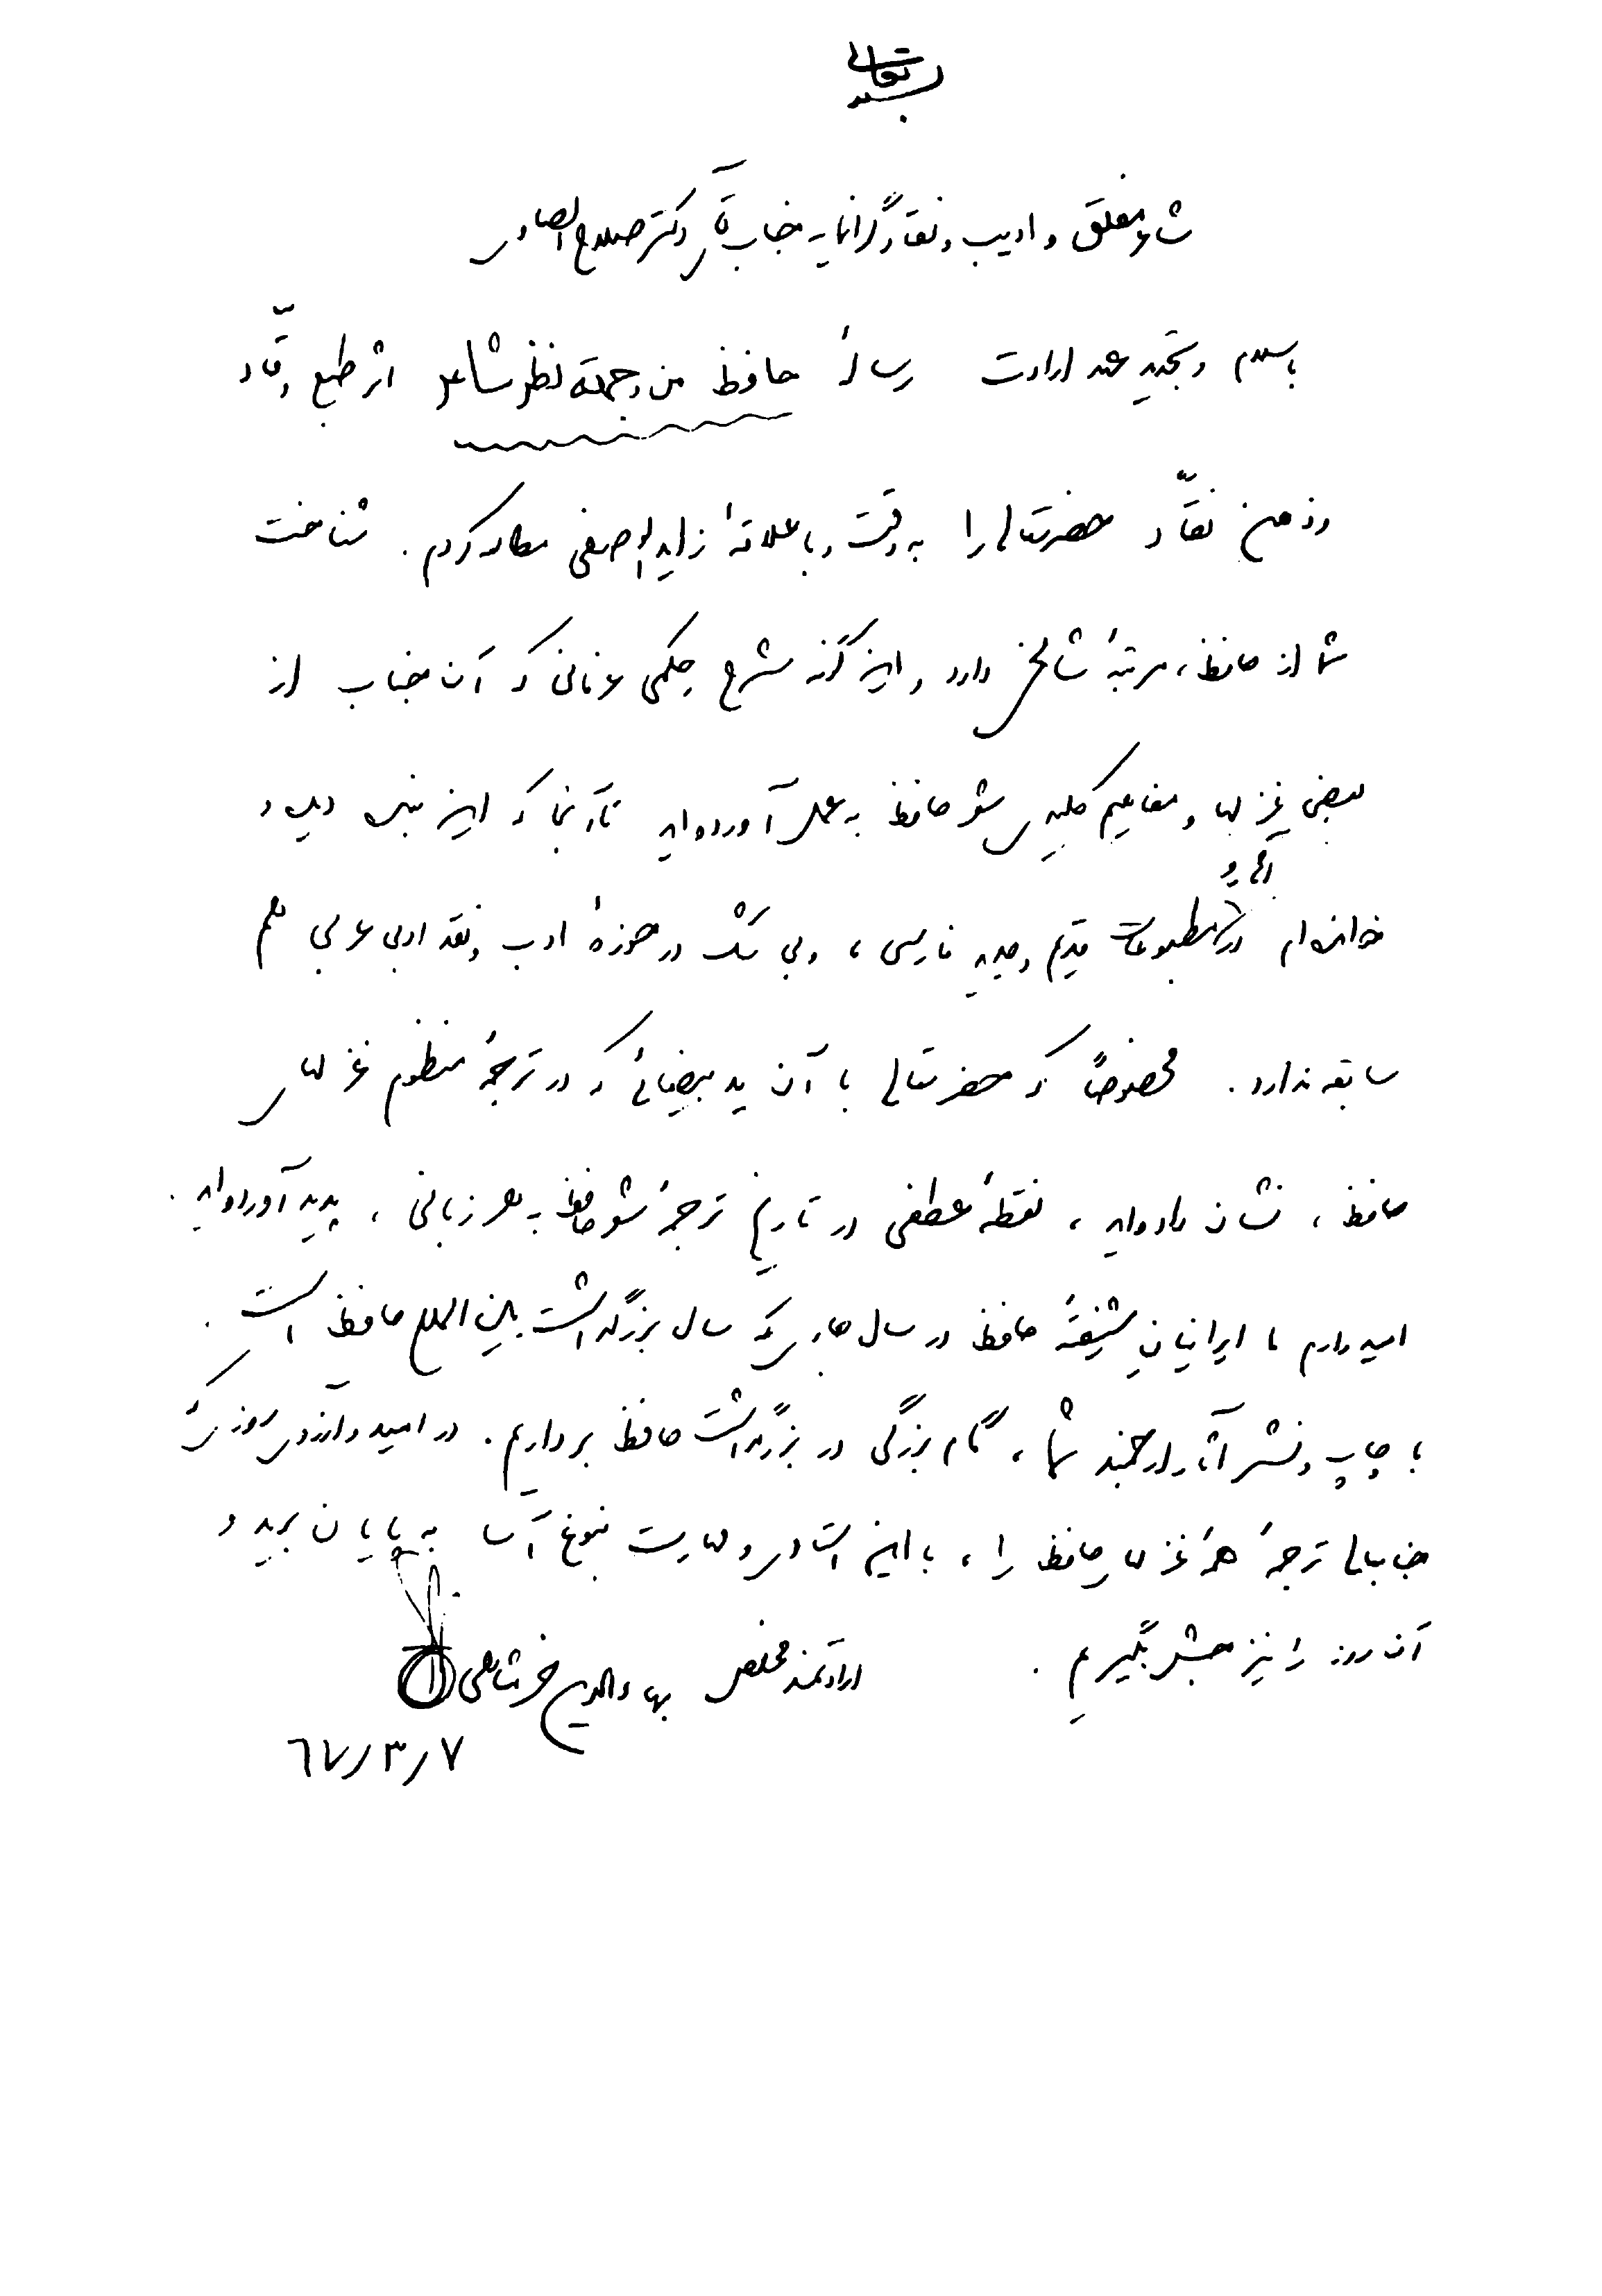 بسمه تعالی
شاعر مفلق و ادیب و نقاد گرانمایه جناب آقای دکتر صلاح الصاوی
با سلام و تجدید عهد ارادت رسالهٔ حافظ من وجهة نظر شاعر اثر طبع وقّاد
و ذهن نقّاد حضرتعالی را به دقت و با علاقهٔ زایدالوصفی مطالعه کردم. شناخت
شما از حافظ، مرتبهٔ شامخی دارد و این گونه شرح حکمی عرفانی که آن جناب از
بعضی غزلها و مفاهیم کلیدی شعر حافظ به عمل آورده‌اید تا آنجا که این بنده دیده و
خوانده‌ام در آثار و مطبوعات قدیم و جدید فارسی، و بی شک در حوزهٔ ادب و نقد ادبی عربی هم
سابقه ندارد. مخصوصاً که حضرتعالی با آن ید بیضائی که در ترجمهٔ منظوم غزلهای
حافظ، نشان داده‌اید، نقطهٔ عطفی در تاریخ ترجمهٔ شعر حافظ به هر زبانی، پدید آورده‌اید.
امیدوارم ما ایرانیانِ شیفتهٔ حافظ در سال جاری که سال بزرگداشت بین المللی حافظ است.
با چاپ و نشر آثار ارجمند شما، گام بزرگی در بزرگداشت حافظ برداریم. در امید و آرزوی روزی که
جنابعالی ترجمهٔ همهٔ غزلهای حافظ را، با این استادی و مهارت نبوغ آسا به پایان برید و
آن روز را نیز جشن بگیریم. ارادتمند مخلص بهاءالدین خرمشاهی
٦٧/٣/٧